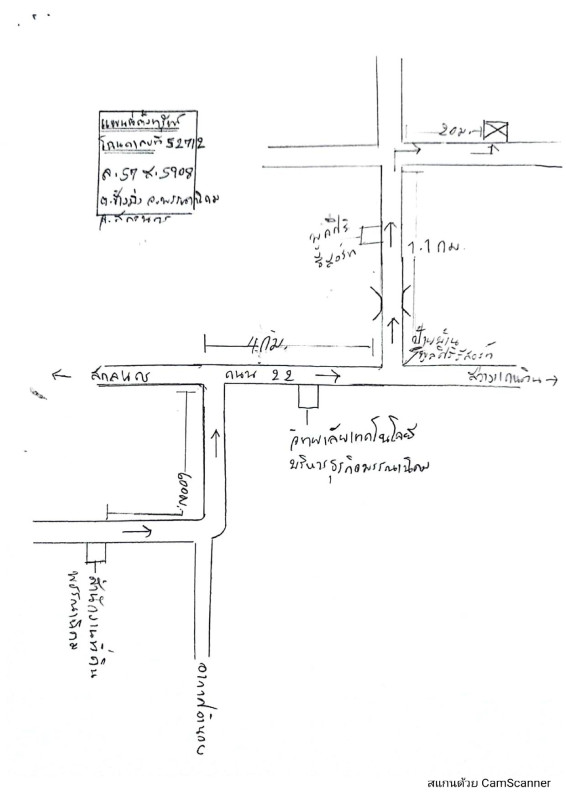 แผนที่ตั้งทรัพย์
โฉนดเลขที่ 52712
ล.57 น.5908
ต.ช้างมิ่ง อ.พรรณานิคม
จ.สกลนคร
20ม.
พูลศิริ
รีสอร์ท
1.1 กม.
4กม.
ป้าย
พูลศิริรีสอร์ท
สกลนคร
ถนน 22
สว่างแดนดิน
วิทยาลัยเทคโนโลยี
บริหารธุรกิจพรรณานิคม
600ม.
สำนักงานที่ดิน
พรรณานิคม
อากาศอำนวย
สแกนด้วย CamScanner